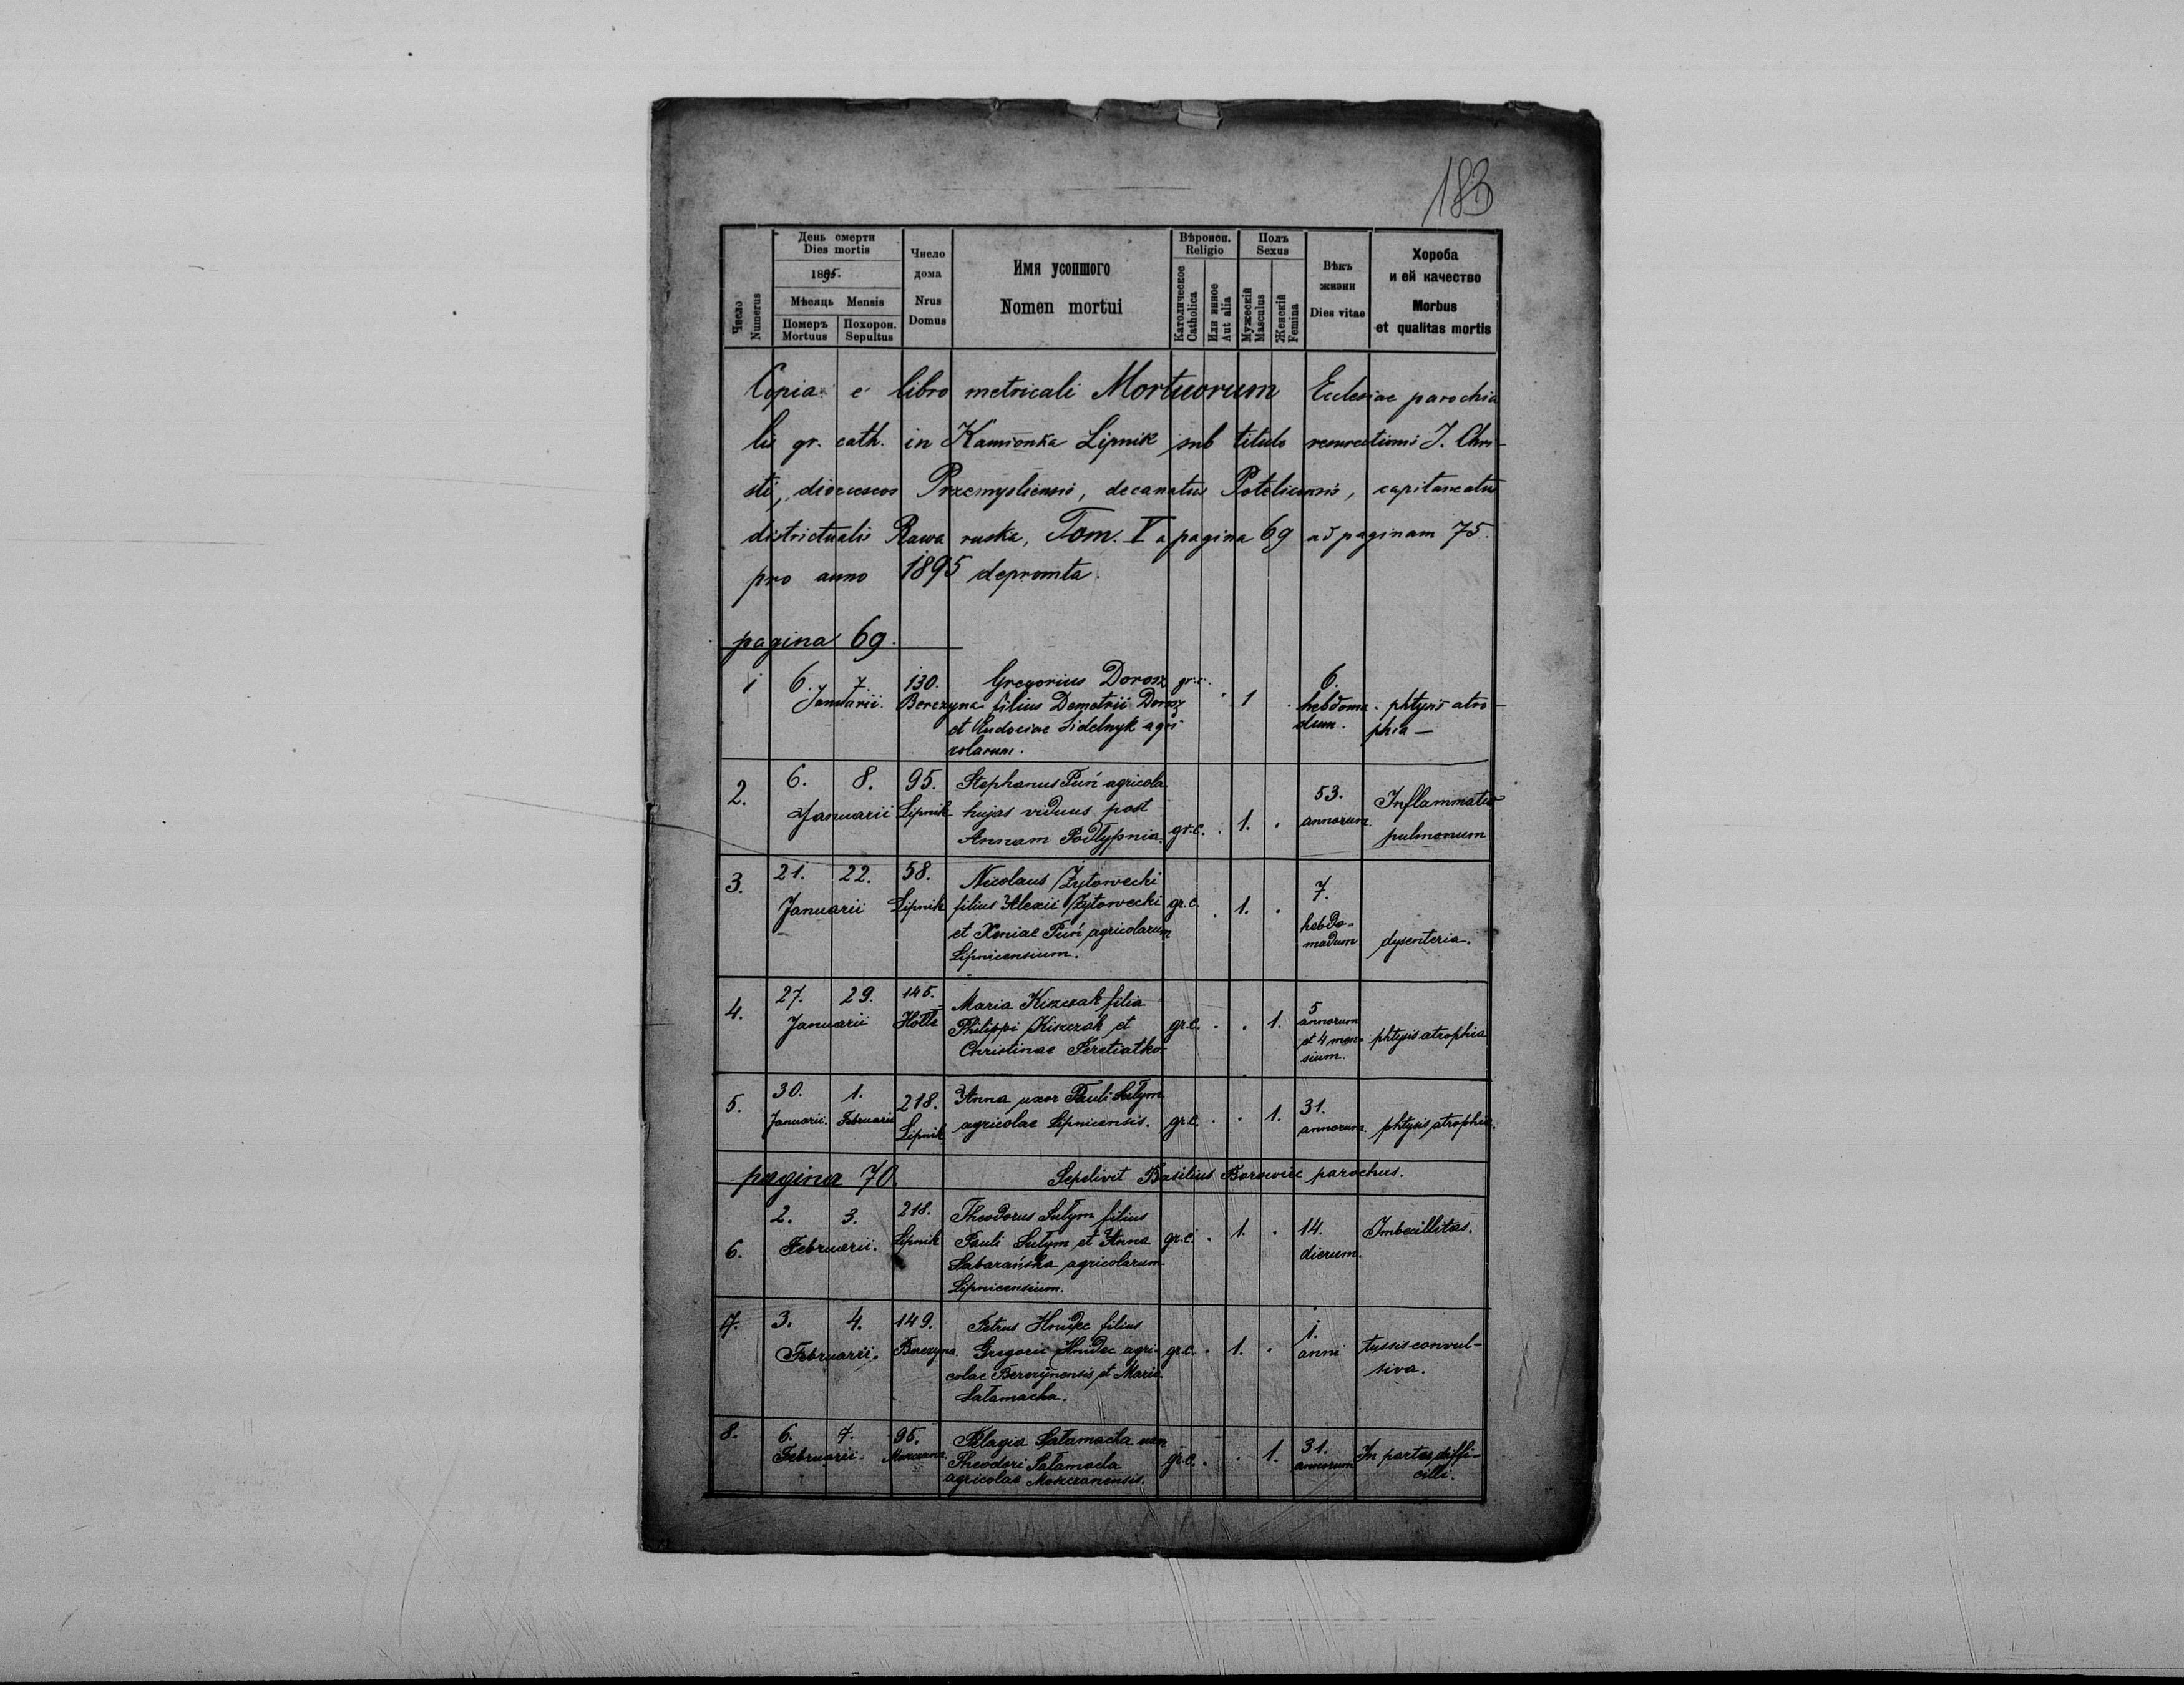 183
День смерти
Dies mortis
1895.
Мѣсяць Mensis
Померъ Похорон.
Mortuus Sepultus
Число
Numerus
Число
дома
Nrus
Domus
Имя усопшого
Nomen mortui
Вѣроисп.
Religio
Католическое
Catholica
Или инное
Aut alia
Полъ
Sexus
Мужескій
Masculus
Женскій
Femina
Вѣкъ
жизни
Dies vitae
Хороба
и ей качество
Morbus
et qualitas mortis
Copia e libro metricali Mortuorum Ecclesiae parochia
lis gr. cath. in Kamionka Lipnik sub titulo resurectionis J. Chri-
sti, dioeceseos Przemysliensis, decanatus Potelicensis, capitaneatus
districtualis Rawa ruska, Tom. V a pagina 69 ad paginam 75.
pro anno 1895 depromta.
pagina 69.
1 6. 7. 130. Gregorius Dorosz gr.c. . 1 . 6.
Januarii. Berezyna filius Demetrii Dorosz hebdoma- phtysis atro-
et Eudociae Sidelnyk agri dum. phia —
colarum.
2. 6. 8. 95. Stephanus Puń agricola 53. Inflammatio
Januarii Lipnik hujas viduus post annorum.
Annam Podłypnia. gr.c. . 1. . pulmonum
3. 21. 22. 58. Nicolaus Żytowecki 7.
Januarii Lipnik filius Alexii Żytowecki gr.c. . 1. . hebdo-
et Xeniae Puń agricolarum madum dysenteria.
Lipnicensium.
4. 27. 29. 145. Maria Kiszczak filia 5
Januarii Hołe Philippi Kiszczak et gr.c. . . 1. annorum
Christinae Teretiatko et 4 men- phtysis atrophia
sium.
5. 30. 1. 218. Anna uxor Pauli Sułym 31.
Januarii. Februarii Lipnik agricolae Lipnicensis. gr.c. . . 1. annorum. phtysis atrophia.
pagina 70. Sepelivit Basilius Borowiec parochus.
6. 2. 3. 218. Theodorus Sułym filius
Februarii. Lipnik Pauli Sułym et Anna gr.c. . 1. . 14. Imbecillitas.
Sabarańska agricolarum dierum.
Lipnicensium.
7. 3. 4. 149. Petrus Hnidec filius 1.
Februarii. Berezyna. Gregorii Hnidec agri- gr.c. . 1. . anni tussis convul-
colae Berezynensis et Marie siva.
Sałamacha.
8. 6. 7. 95. Pelagia Sałamacha uxor
Februarii. Moszczana Theodori Sałamacha gr.c. . . 1. 31. In partus diffi-
agricolae Moszczanensis. annorum cilli.